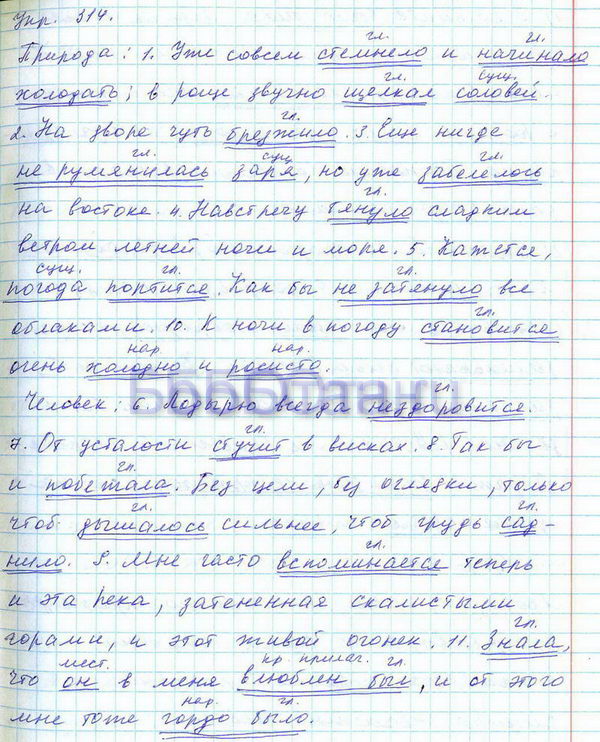 Упр. 314.
гл. гл.
Природа: 1. Уже совсем стемнело и начинало
гл. сущ.
холодать; в роще звучно щелкал соловей.
гл.
2. На дворе чуть брезжило. 3 Еще нигде
гл. сущ. гл.
не румянилась заря, но уже забелелось
гл.
на востоке. 4. Навстречу тянуло сладким
ветром летней ночи и моря. 5. Кажется,
сущ. гл. гл.
погода портится. Как бы не затянуло все
гл.
облаками. 10. К ночи в погоду становится
нар. нар.
очень холодно и росисто.
гл.
Человек: 6. Лодырю всегда нездоровится.
гл.
7. От усталости стучит в висках. 8. Так бы
гл.
и побежала. Без цели, без оглядки, только
гл. гл.
чтоб дышалось сильнее, чтоб грудь сад-
гл.
нило. 9. Мне часто вспоминается теперь
и эта река, затененная скалистыми
гл.
горами, и этот живой огонек. 11. Знала,
мест. кр прилаг. гл.
что он в меня влюблен был, и от этого
нар. гл.
мне тоже гордо было.